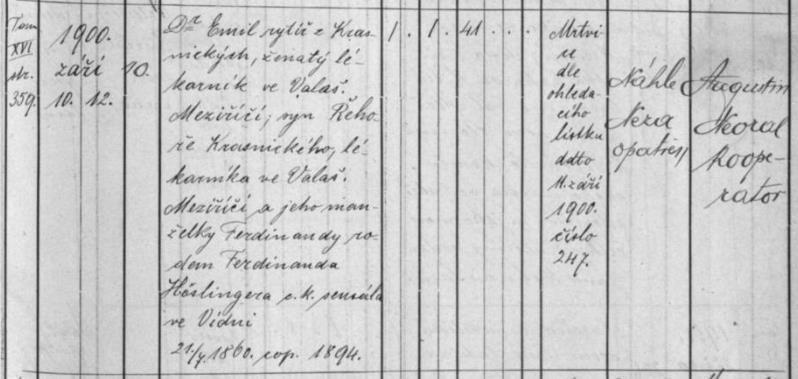 Tom
XVI
str.
359.
1900.
září
10. 12.
10.
Dr Emil rytíř z Kras-
nických, ženatý lé-
kárník ve Valaš.
Meziříčí, syn Řeho-
ře Krasnického, lé-
kárníka ve Valaš.
Meziříčí a jeho man-
želky Ferdinandy ro-
dem Ferdinanda
Höslingera c. k. sensála
ve Vídni
21./ 1860. cop. 1894.
1 . 1 . 41 . . .
Mrtvi
u
dle
ohleda-
cího
lístku
ddto
11. září
1900.
číslo
247.
Náhle
Neza
opatřen
Augustin
Neoral
koope-
rator